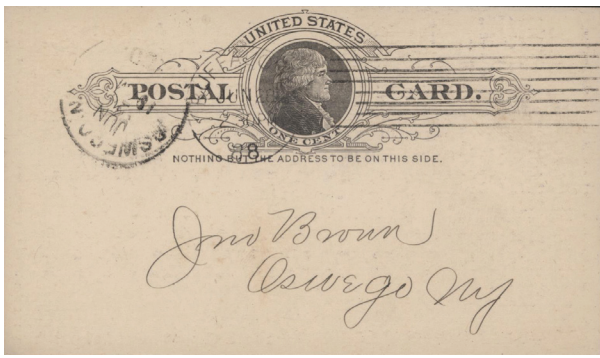 UNITED STATES
POSTAL CARD.
ONE CENT
NOTHING BUT THE ADDRESS TO BE ON THIS SIDE.
JUN
18
JUN
Jno Brown
Oswego Ny